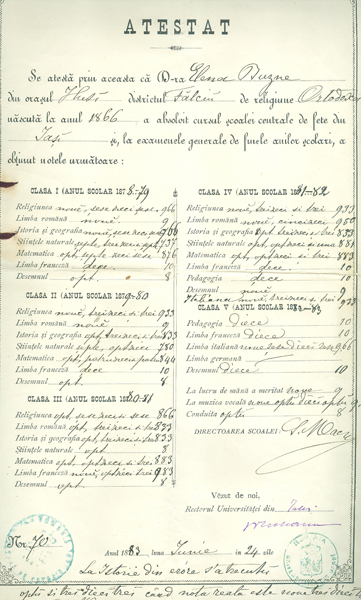 ATESTAT
Se atestă prin aceasta că D-ra Elena Buzne
din orașul Huși districtul Fălciu de religiune Ortodoxă
născută la anul 1866 a absolvit cursul școalei centrale de fete din
Iași și, la examenele generale de finele anilor școlari, a
obținut notele următoare:
CLASA I (ANUL SCOLAR 1878-79
Religiunea nouă, șese zeci șese 966
Limba română nouă 9
Istoria și geografia nouă, 966
Științele naturale șepte, 737
Matematica opt, șepte zeci șese 876
Limba franceză dece 10
Desemnul opt 8
CLASA II (ANUL SCOLAR 1879-80
Religiunea nouă, treizeci și trei 933
Limba română nouă 9
Istoria și geografia opt, treizeci și trei 833
Științele naturale șepte, optzeci 780
Matematica opt, patruzeci și patru 844
Limba franceză dece 10
Desemnul opt 8
CLASA III (ANUL SCOLAR 1880-81
Religiunea opt, șesezeci și șese 866
Limba română opt, treizeci și trei 833
Istoria și geografia opt, treizeci și trei 833
Științele naturale opt 8
Matematica opt, optzeci și trei 883
Limba franceză nouă, optzeci și trei 983
Desemnul opt 8
CLASA IV (ANUL SCOLAR 1881-82
Religiunea nouă, treizeci și trei 933
Limba română nouă, cincizeci 950
Istoria și geografia opt, treizeci și trei 833
Științele naturale opt, optzeci și una 881
Matematica opt, optzeci și trei 883
Limba franceză dece 10
Pedagogia dece 10
Desemnul nouă 9
Italiana nouă, treizeci și trei 933
CLASA V (ANUL SCOLAR 1882-83
Pedagogia diece 10
Limba franceză diece 10
Limba italiană nouă 966
Limba germană
Desemnul diece 10
La lucru de mână a meritat noue 9
La muzica vocală noue
Conduita optŭ 8
DIRECTOAREA SCOALEI
Văzut de noi,
Rectorul Universității din Iași
Nr. 70
Anul 1883 luna Iunie în 24 zile
La Istorie din eróre s'a trecut
opt și trei dieci trei când nota reala este noue trei dieci